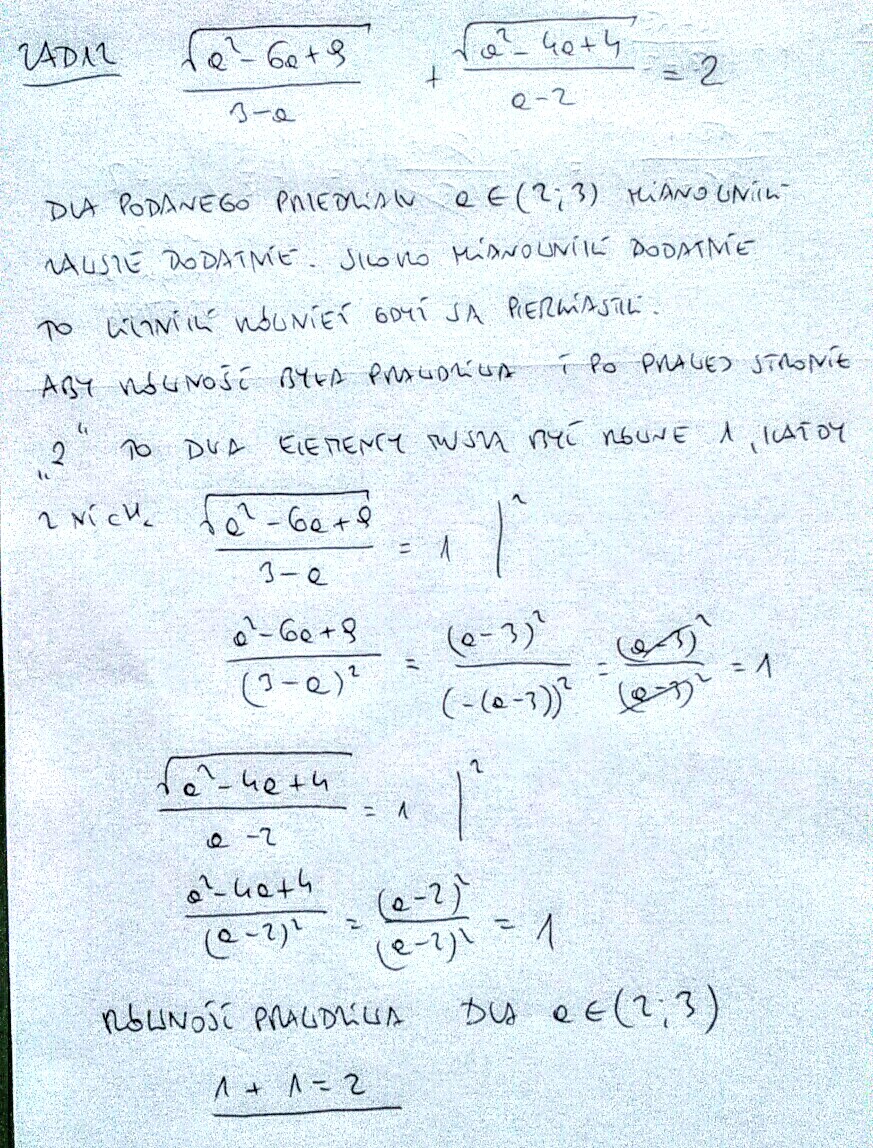 ZAD12 √(a²-6a+9)/(3-a) + √(a²-4a+4)/(a-2) = 2
DLA PODANEGO PRZEDZIAŁU a ∈ (2;3) MIANOWNIKI
ZAWSZE DODATNIE. SKORO MIANOWNIKI DODATNIE
TO LICZNIKI RÓWNIEŻ GDYŻ SĄ PIERWIASTKI.
ABY RÓWNOŚĆ BYŁA PRAWDZIWA I PO PRAWEJ STRONIE
„2“ TO DWA ELEMENTY MUSZĄ BYĆ RÓWNE 1, KAŻDY
Z NICH. √(a²-6a+9)/(3-a) = 1 |²
(a²-6a+9)/(3-a)² = (a-3)²/(-(a-3))² = (a-3)²/(a-3)² = 1
√(a²-4a+4)/(a-2) = 1 |²
(a²-4a+4)/(a-2)² = (a-2)²/(a-2)² = 1
RÓWNOŚĆ PRAWDZIWA DLA a ∈ (2;3)
1 + 1 = 2